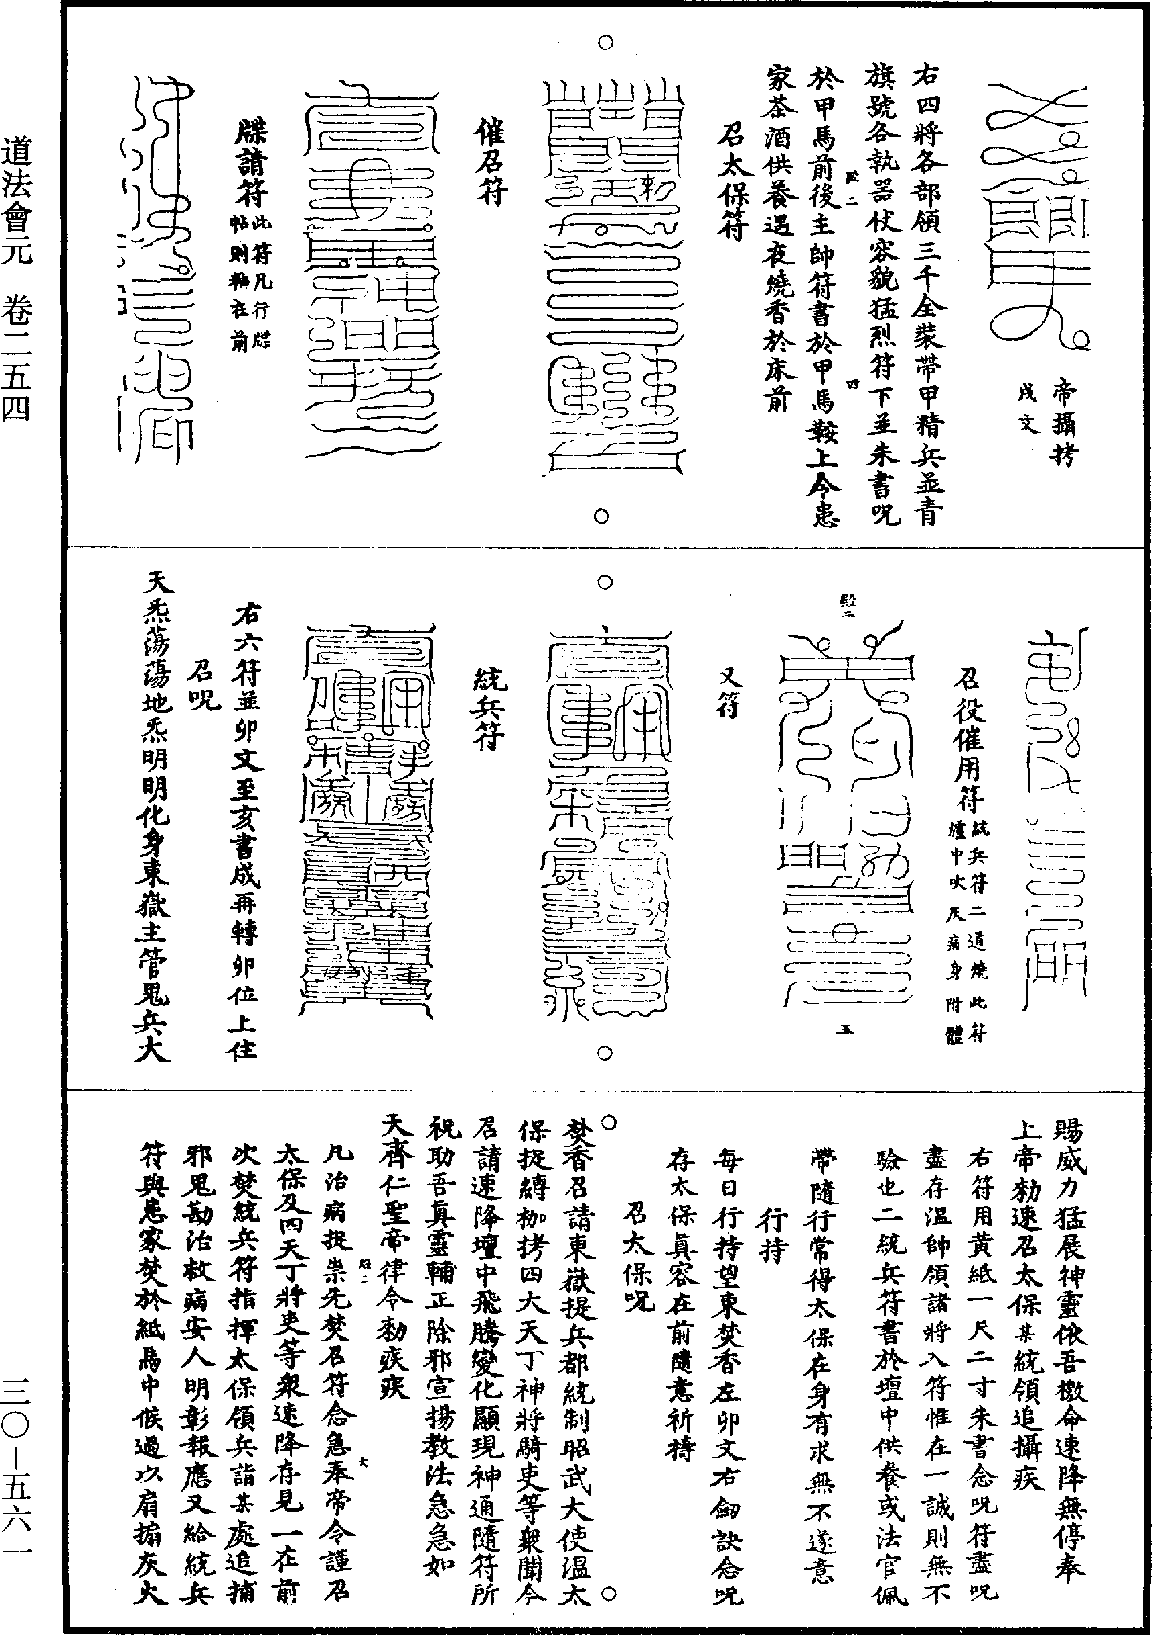 道法會元　卷二五四
三〇－五六一
帝攝拷
戌文
右四將各部領三千全裝帶甲精兵並青
旗號各執器仗容貌猛烈符下並朱書呪
於甲馬前後主帥符書於甲馬鞍上令患
家茶酒供養遇夜燒香於床前
召太保符
敕
催召符
牒請符
此符凡行牒
帖則粘在前
召役催用符
統兵符二道燒此符
爐中吹灰病身附體
五
又符
統兵符
右六符並卯文至亥書成再轉卯位上住
召呪
天炁蕩蕩地炁明明化身東嶽主管鬼兵大
賜威力猛展神靈依吾檄命速降無停奉
上帝勑速召太保某統領追攝疾
右符用黃紙一尺二寸朱書念呪符盡呪
盡存溫帥領諸將入符惟在一誠則無不
驗也二統兵符書於壇中供養或法官佩
帶隨行常得太保在身有求無不遂意
行持
每日行持望東焚香左卯文右劒訣念呪
存太保真容在前隨意祈禱
召太保呪
焚香召請東嶽提兵都統制昭武大使溫太
保捉縛枷拷四大天丁神將騎吏等衆聞今
召請速降壇中飛騰變化顯現神通隨符所
祝助吾真靈輔正除邪宣揚教法急急如
天齊仁聖帝律令勑疾疾
凡治病捉祟先焚召符念急奉帝令謹召
太保及四天丁將吏等衆速降存見一在前
次焚統兵符指揮太保領兵詣某處追捕
邪鬼勘治救病安人明彰報應又給統兵
符與患家焚於紙馬中候過以扇搧灰火